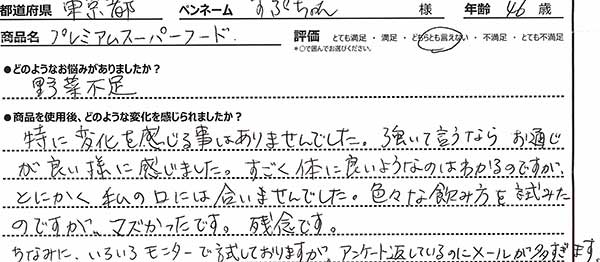 都道府県 東京都 ペンネーム すぷちゃん 様 年齢 46 歳
商品名 プレミアムスーパーフード. 評価 とても満足 ・ 満足 ・ どちらとも言えない ・ 不満足 ・ とても不満足
*○で囲んでお選びください。
●どのようなお悩みがありましたか？
野菜不足
●商品を使用後、どのような変化を感じられましたか？
特に変化を感じる事はありませんでした。強いて言うなら お通じ
が良い様に感じました。すごく体に良いようなのはわかるのですが、
とにかく私の口には合いませんでした。色々な飲み方を試みた
のですが、マズかったです。残念です。
ちなみに、いろいろモニターで試しておりますが、アンケート返しているのにメールが多すぎます。